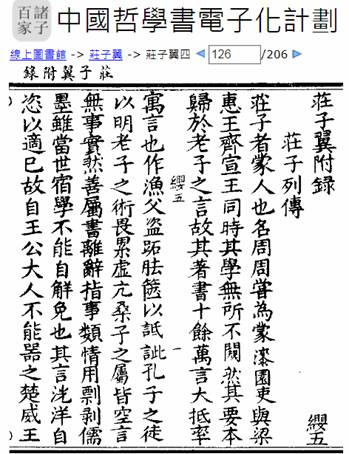 諸子百家
中國哲學書電子化計劃
線上圖書館 -> 莊子翼 -> 莊子翼四 126 /206
莊子翼附錄
莊子翼附録
莊子列傳
纓五
莊子者蒙人也名周周甞為蒙漆園吏與梁
惠王齊宣王同時其學無所不闚然其要本
歸於老子之言故其著書十餘萬言大抵率
纓五 一
寓言也作漁父盜跖胠篋以詆訿孔子之徒
以明老子之術畏累虛亢桑子之屬皆空言
無事實然善屬書離辭指事類情用剽剥儒
墨雖當世宿學不能自解免也其言洸洋自
恣以適己故自王公大人不能器之楚威王